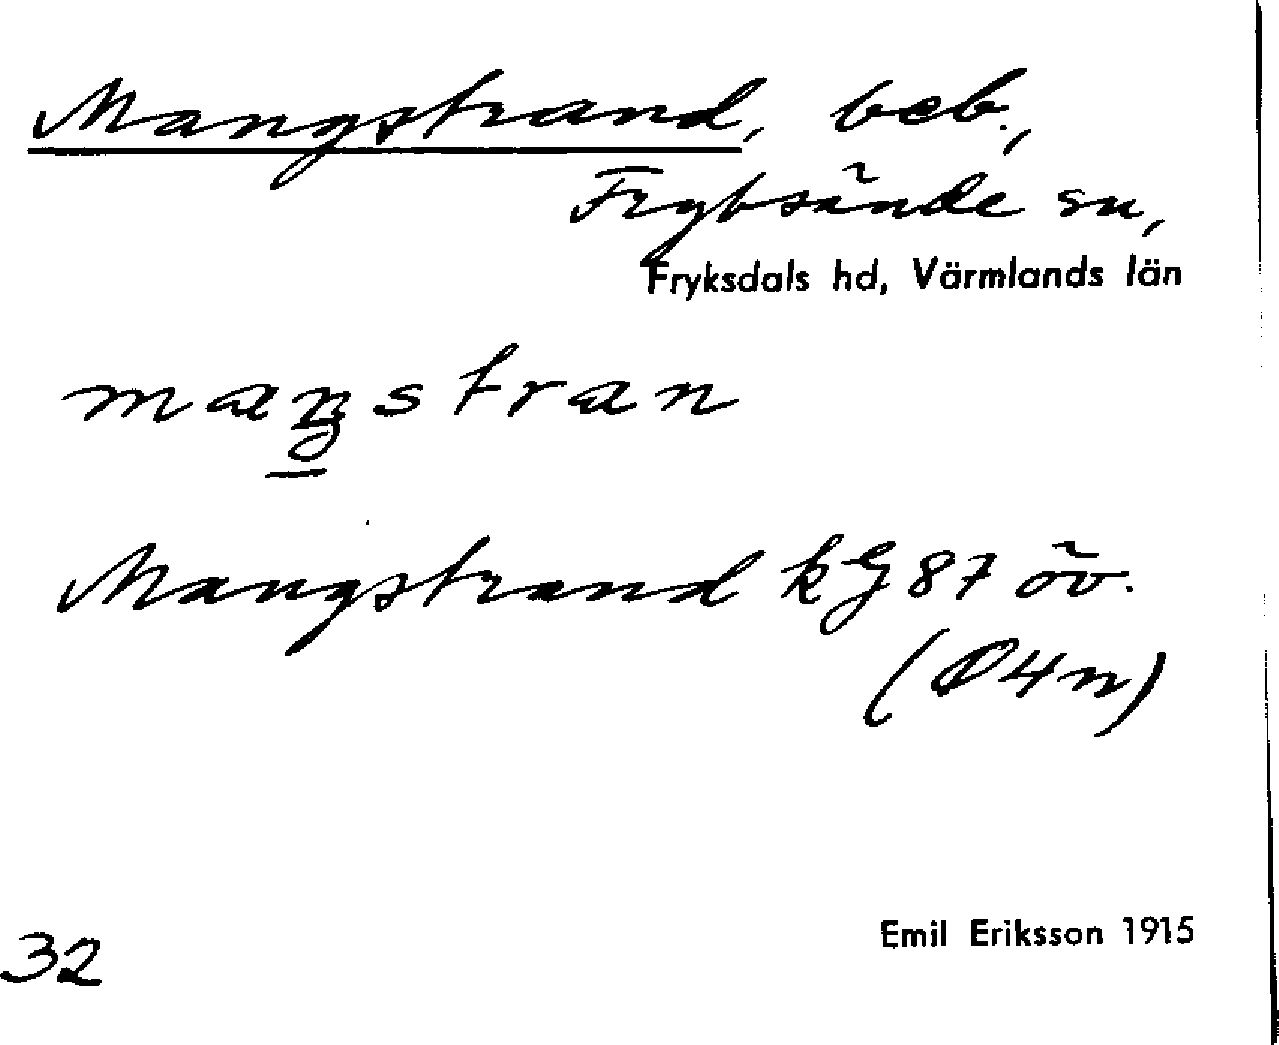 Mangstrand, beb.,
Fryksände sn,
Fryksdals hd, Värmlands län
maŋstran
Mangstrand kG 87 öv.
(Ø4n)
32
Emil Eriksson 1915